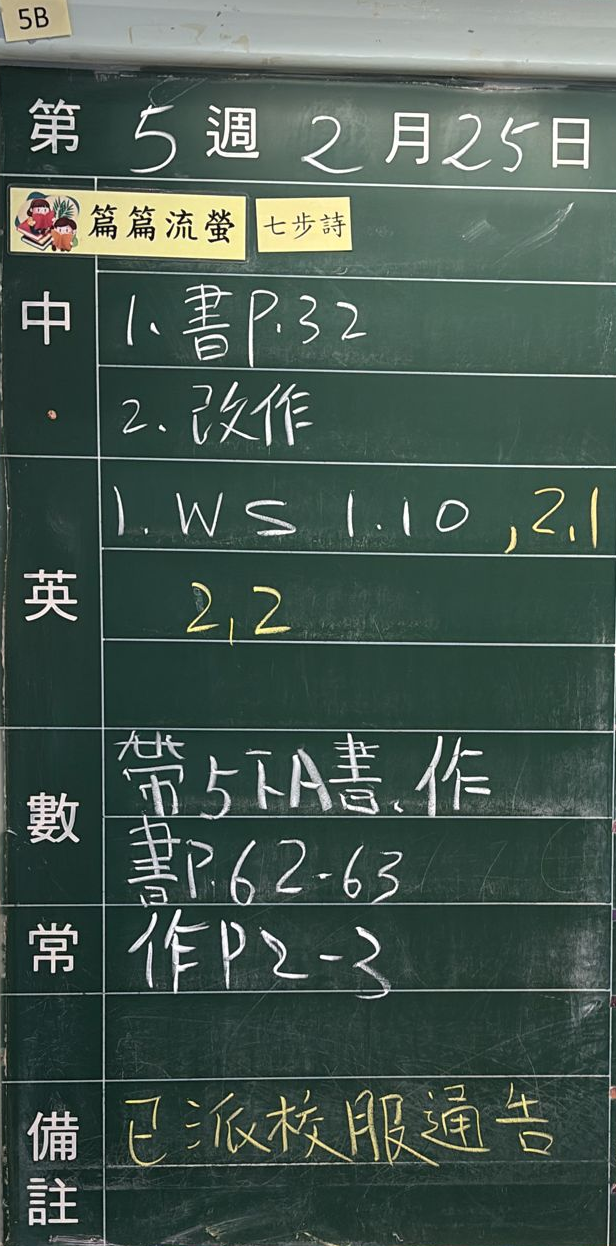 5B
第 5 週 2 月 25 日
篇篇流螢 七步詩
中
1. 書P.32
2. 改作
英
1. WS 1.10 ,2.1
2,2
數
帶5下A書、作
書P.62-63
常
作P2-3
備註
已派校服通告